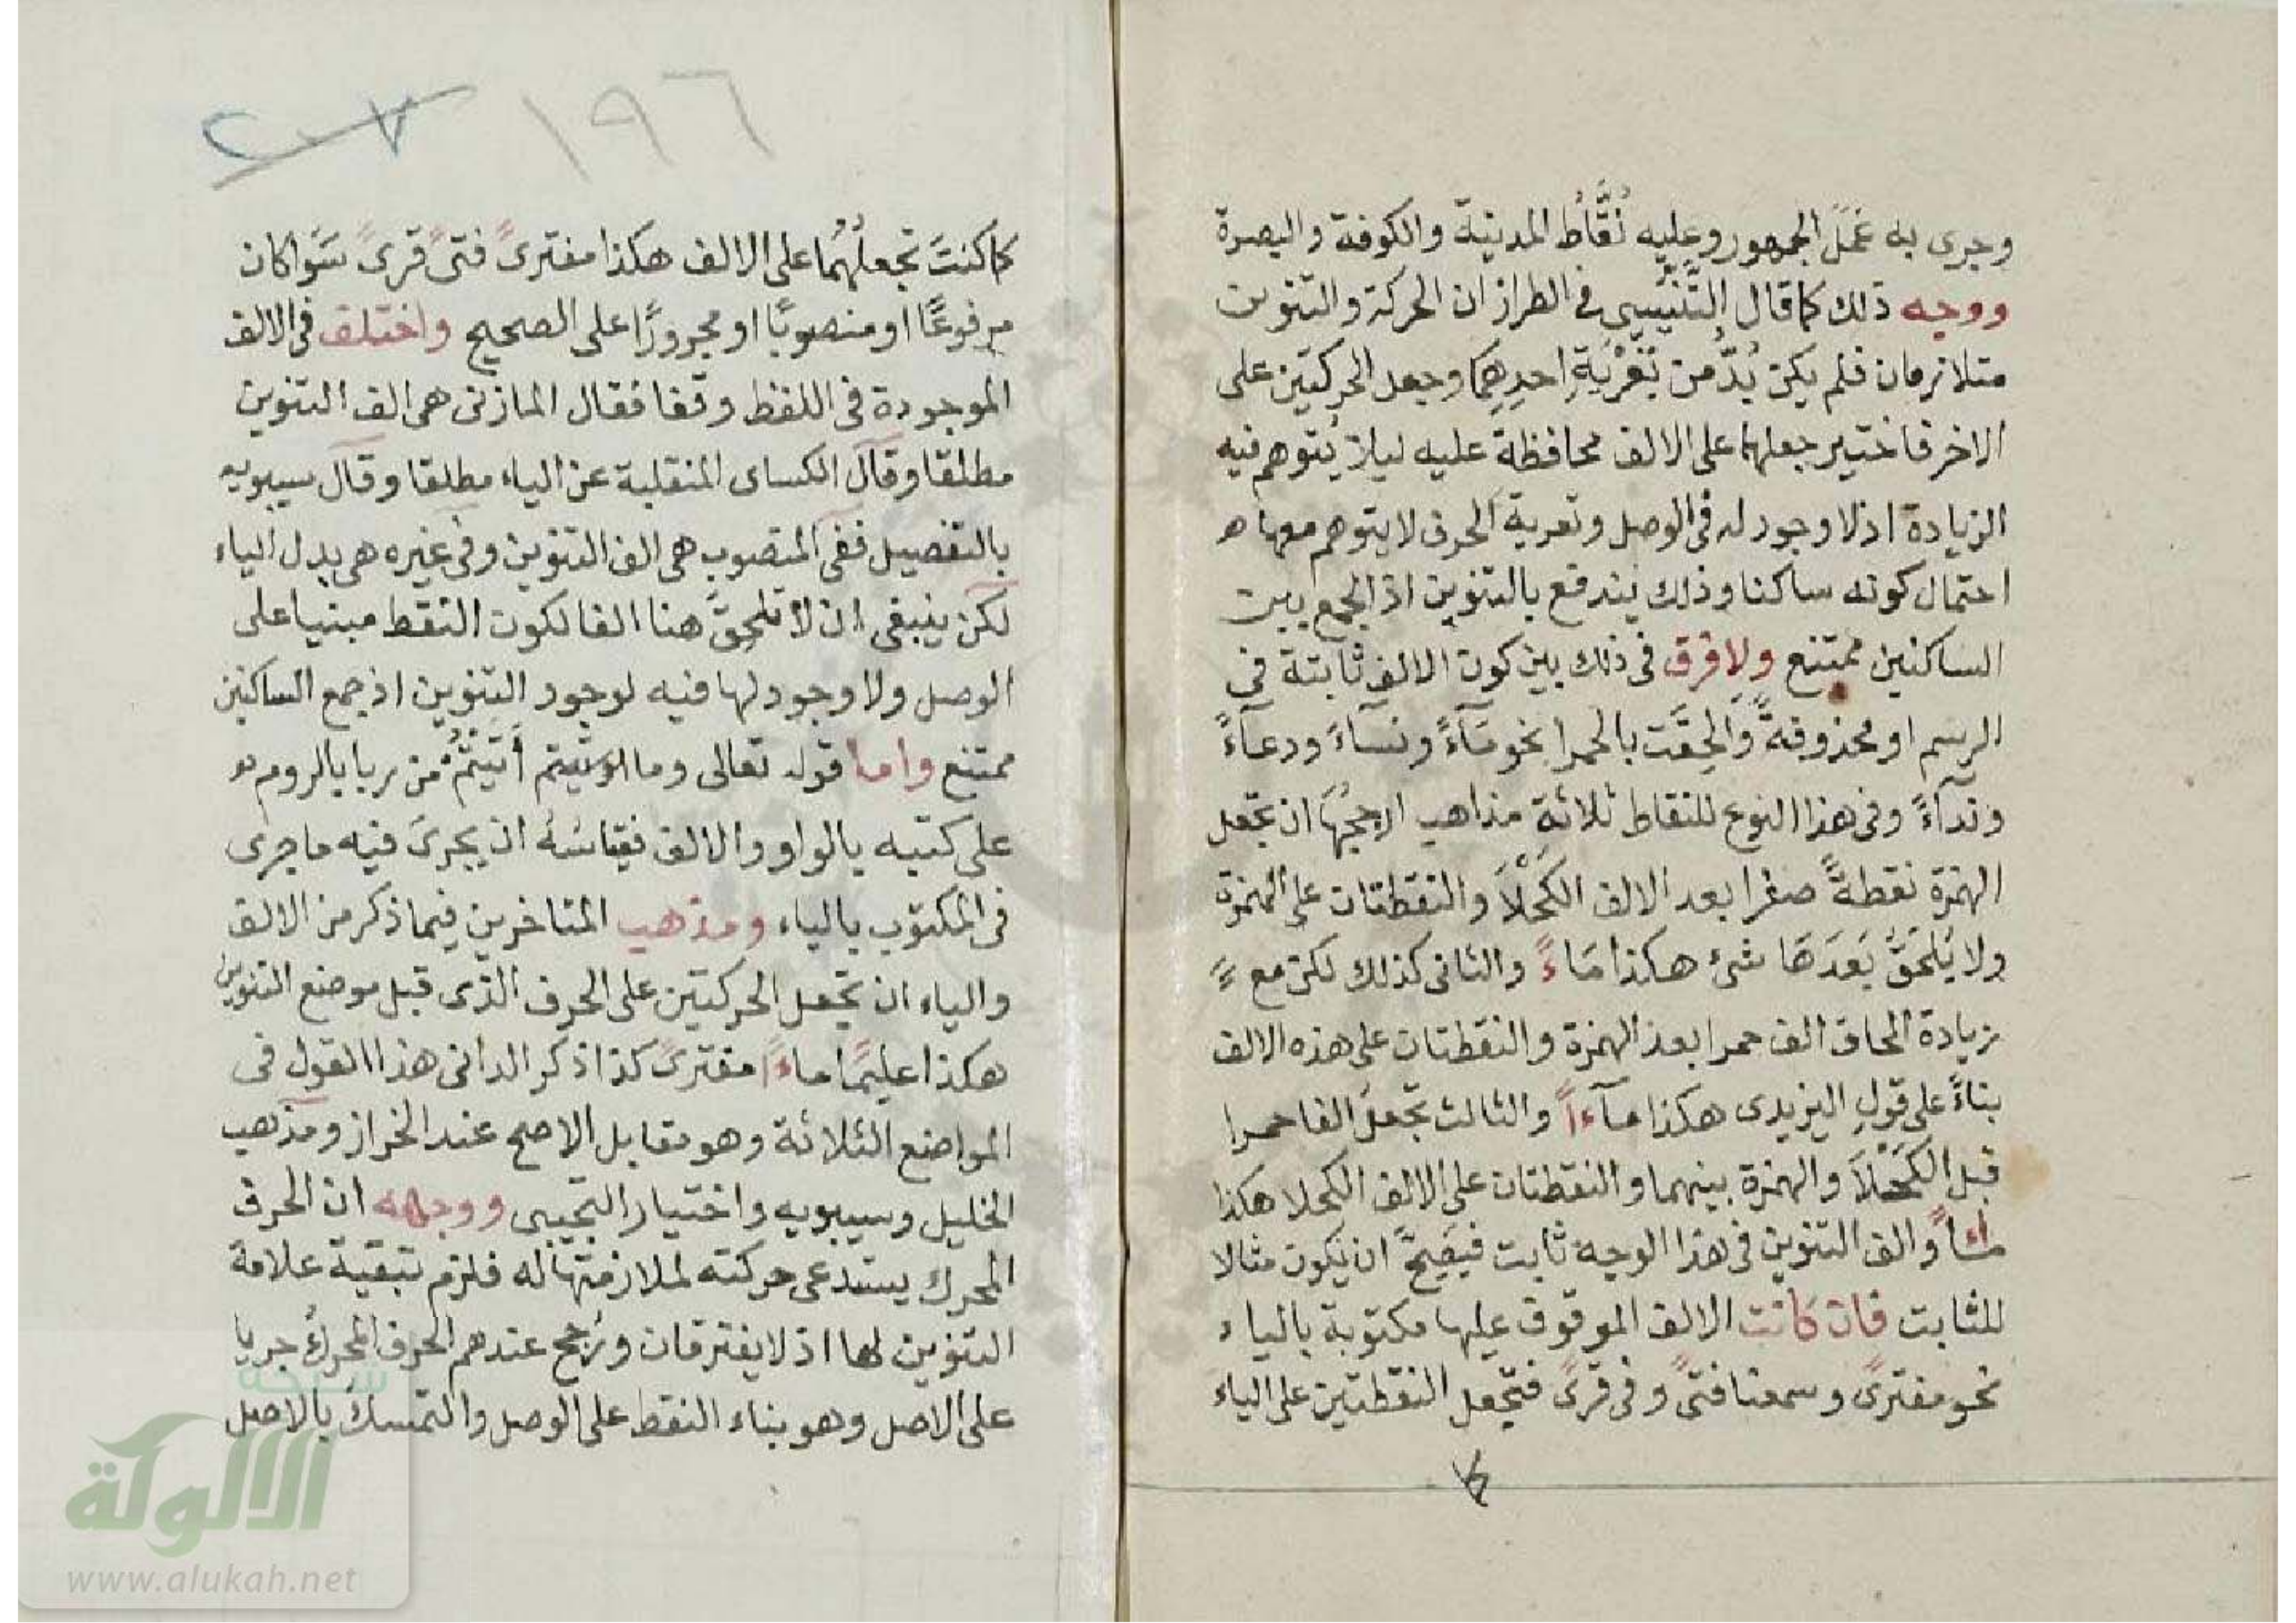 وجرى به عَمَلُ الجمهور وعليه نُقَّاطُ المدينة والكوفة والبصرة
ووجه ذلك كما قال التَّنَسِيى فى الطراز ان الحركة والتنوين
متلازمان فلم يكن بُدٌّ من تَعْرِيَةِ احدِهِمَا وجعل الحركتين على
الاخر فاختير جعلهما على الالف محافظةً عليه ليلا يُتوهم فيه
الزيادة اذ لا وجود له فى الوصل وتعرية الحرف لا يتوهم معها ه
احتمال كونه ساكنا وذلك يندفع بالتنوين اذ الجمع بين
الساكنين ممتنع ولا فرق فى ذلك بين كون الالف ثابتة فى
الرسم او محذوفةً وَالحِقَت بالحمرا نحو مَآءً ونسَآءً ودعآءً
وندآءً وفى هذا النوع للنقاط ثلاثة مذاهب ارجحُهَا ان تجعل
الهمزة نقطةً صفرا بعد الالف الكَحْلَا والنقطتان على الهمزة
ولا يُلحَقُ بَعدَهَا شئ هكذا مَاءً والثانى كذلك لكن مع
زيادة الحاق الف حمرا بعد الهمزة والنقطتان على هذه الالف
بناءً على قول اليزيدى هكذا مآءاً والثالث تجعلُ الفا حمرا
قبل الكَحْلَا والهمزة بينهما والنقطتان على الالف الكحلا هكذا
مـٰءاً والف التنوين فى هذا الوجه ثابت فيَصِحُّ ان يكون مثالا
للثابت فان كانت الالف الموقوف عليها مكتوبة بالياء
نحو مفترىً وسمعنا فتىً وفى قرىً فتجعل النقطتين على الياء
١٩٦ ٢٠٧
كما كنتَ تجعلُهُمَا على الالف هكذا مفترىً فتىً قرىً سَوَا كان
مرفوعًا او منصوبًا او مجرورًا على الصحيح واختلف فى الالف
الموجودة فى اللفظ وقفا فقال المازنى هى الف التنوين
مطلقا وقال الكساى المنقلبة عن الياء مطلقا وقال سيبويه
بالتفصيل ففى المنصوب هى الف التنوين وفى غيره هى بدل الياء
لكن ينبغى ان لا تلحق هنا الفا لكون النقط مبنيا على
الوصل ولا وجود لها فيه لوجود التنوين اذ جمع الساكنين
ممتنع واما قوله تعالى وما اوتيتم أَتَيْتُمْ من ربا بالروم
على كتبه بالواو والالف فقياسُهُ ان يجرىَ فيه ما جرى
فى المكتوب بالياء ومذهب المتاخرين فيما ذكر من الالف
والياء ان تجعل الحركتين على الحرف الذى قبل موضع التنوين
هكذا عليمًا ماءًا مفترىً كذا ذكر الدانى هذا القول فى
المواضع الثلاثة وهو مقابل الاصح عند الخراز ومذهب
الخليل وسيبويه واختيار التجيبى ووجهه ان الحرف
المحرك يستدعى حركته لملازمتها له فلزم تبقية علامة
التنوين لها اذ لا يفترقان ورُجح عندهم الحرف المحركُ جريا
على الاصل وهو بناء النقط على الوصل والتمسك بالاصل
الألوكة
www.alukah.net